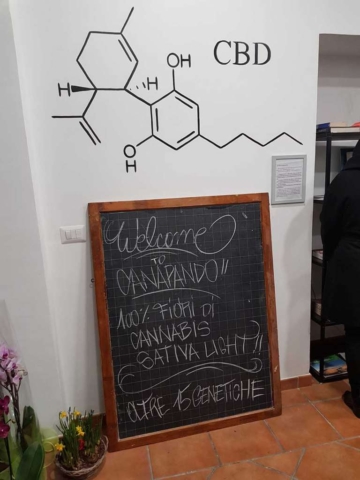 OH
CBD
H
H
O
H
Welcome
TO
CANAPANDO"
100% FIORI DI
CANNABIS
SATIVA LIGHT!!
OLTRE 15 GENETICHE